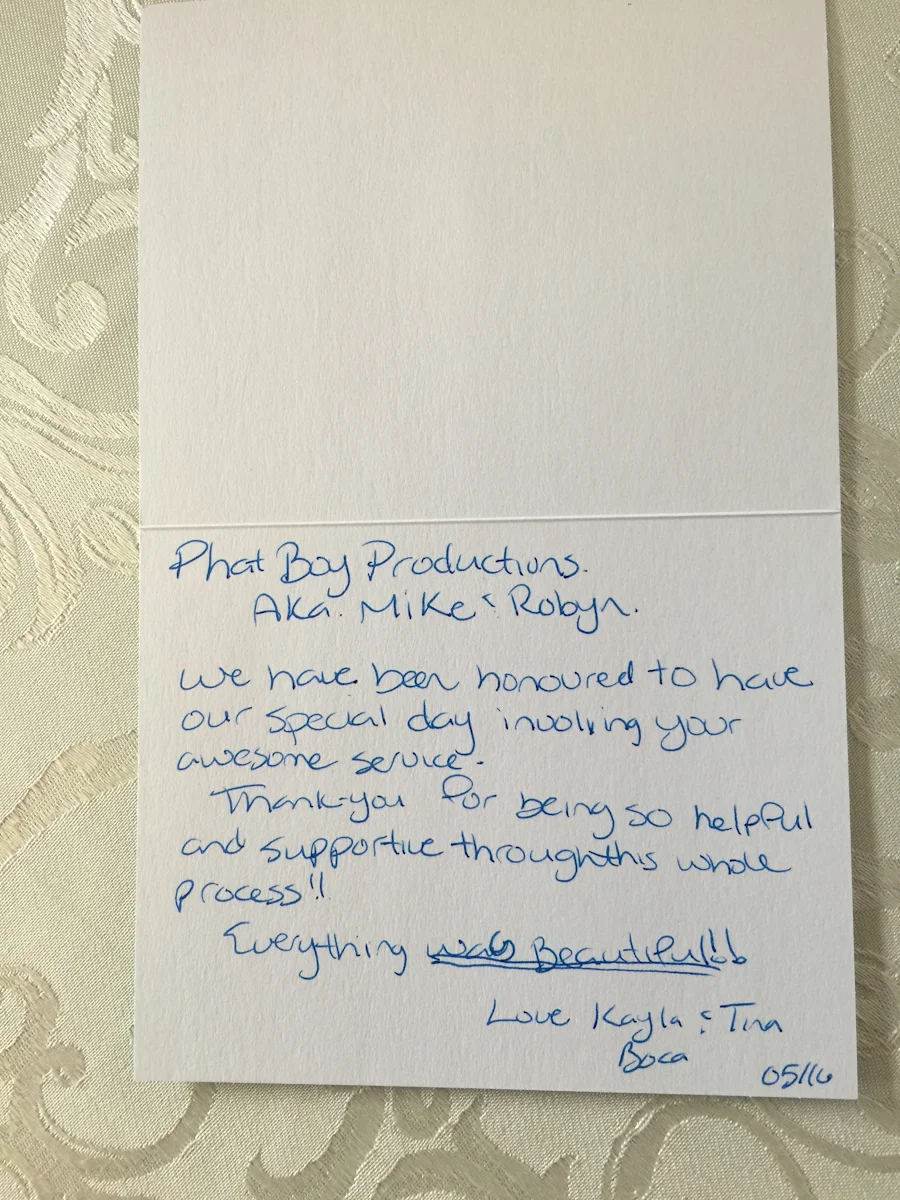 Phat Boy Productions.
AKa. Mike & Robyn.
We have been honoured to have
our special day involving your
awesome service.
Thank-you for being so helpful
and supportive through this whole
process!!
Everything was Beautiful!!
Love Kayla & Tina
Boca
05/16